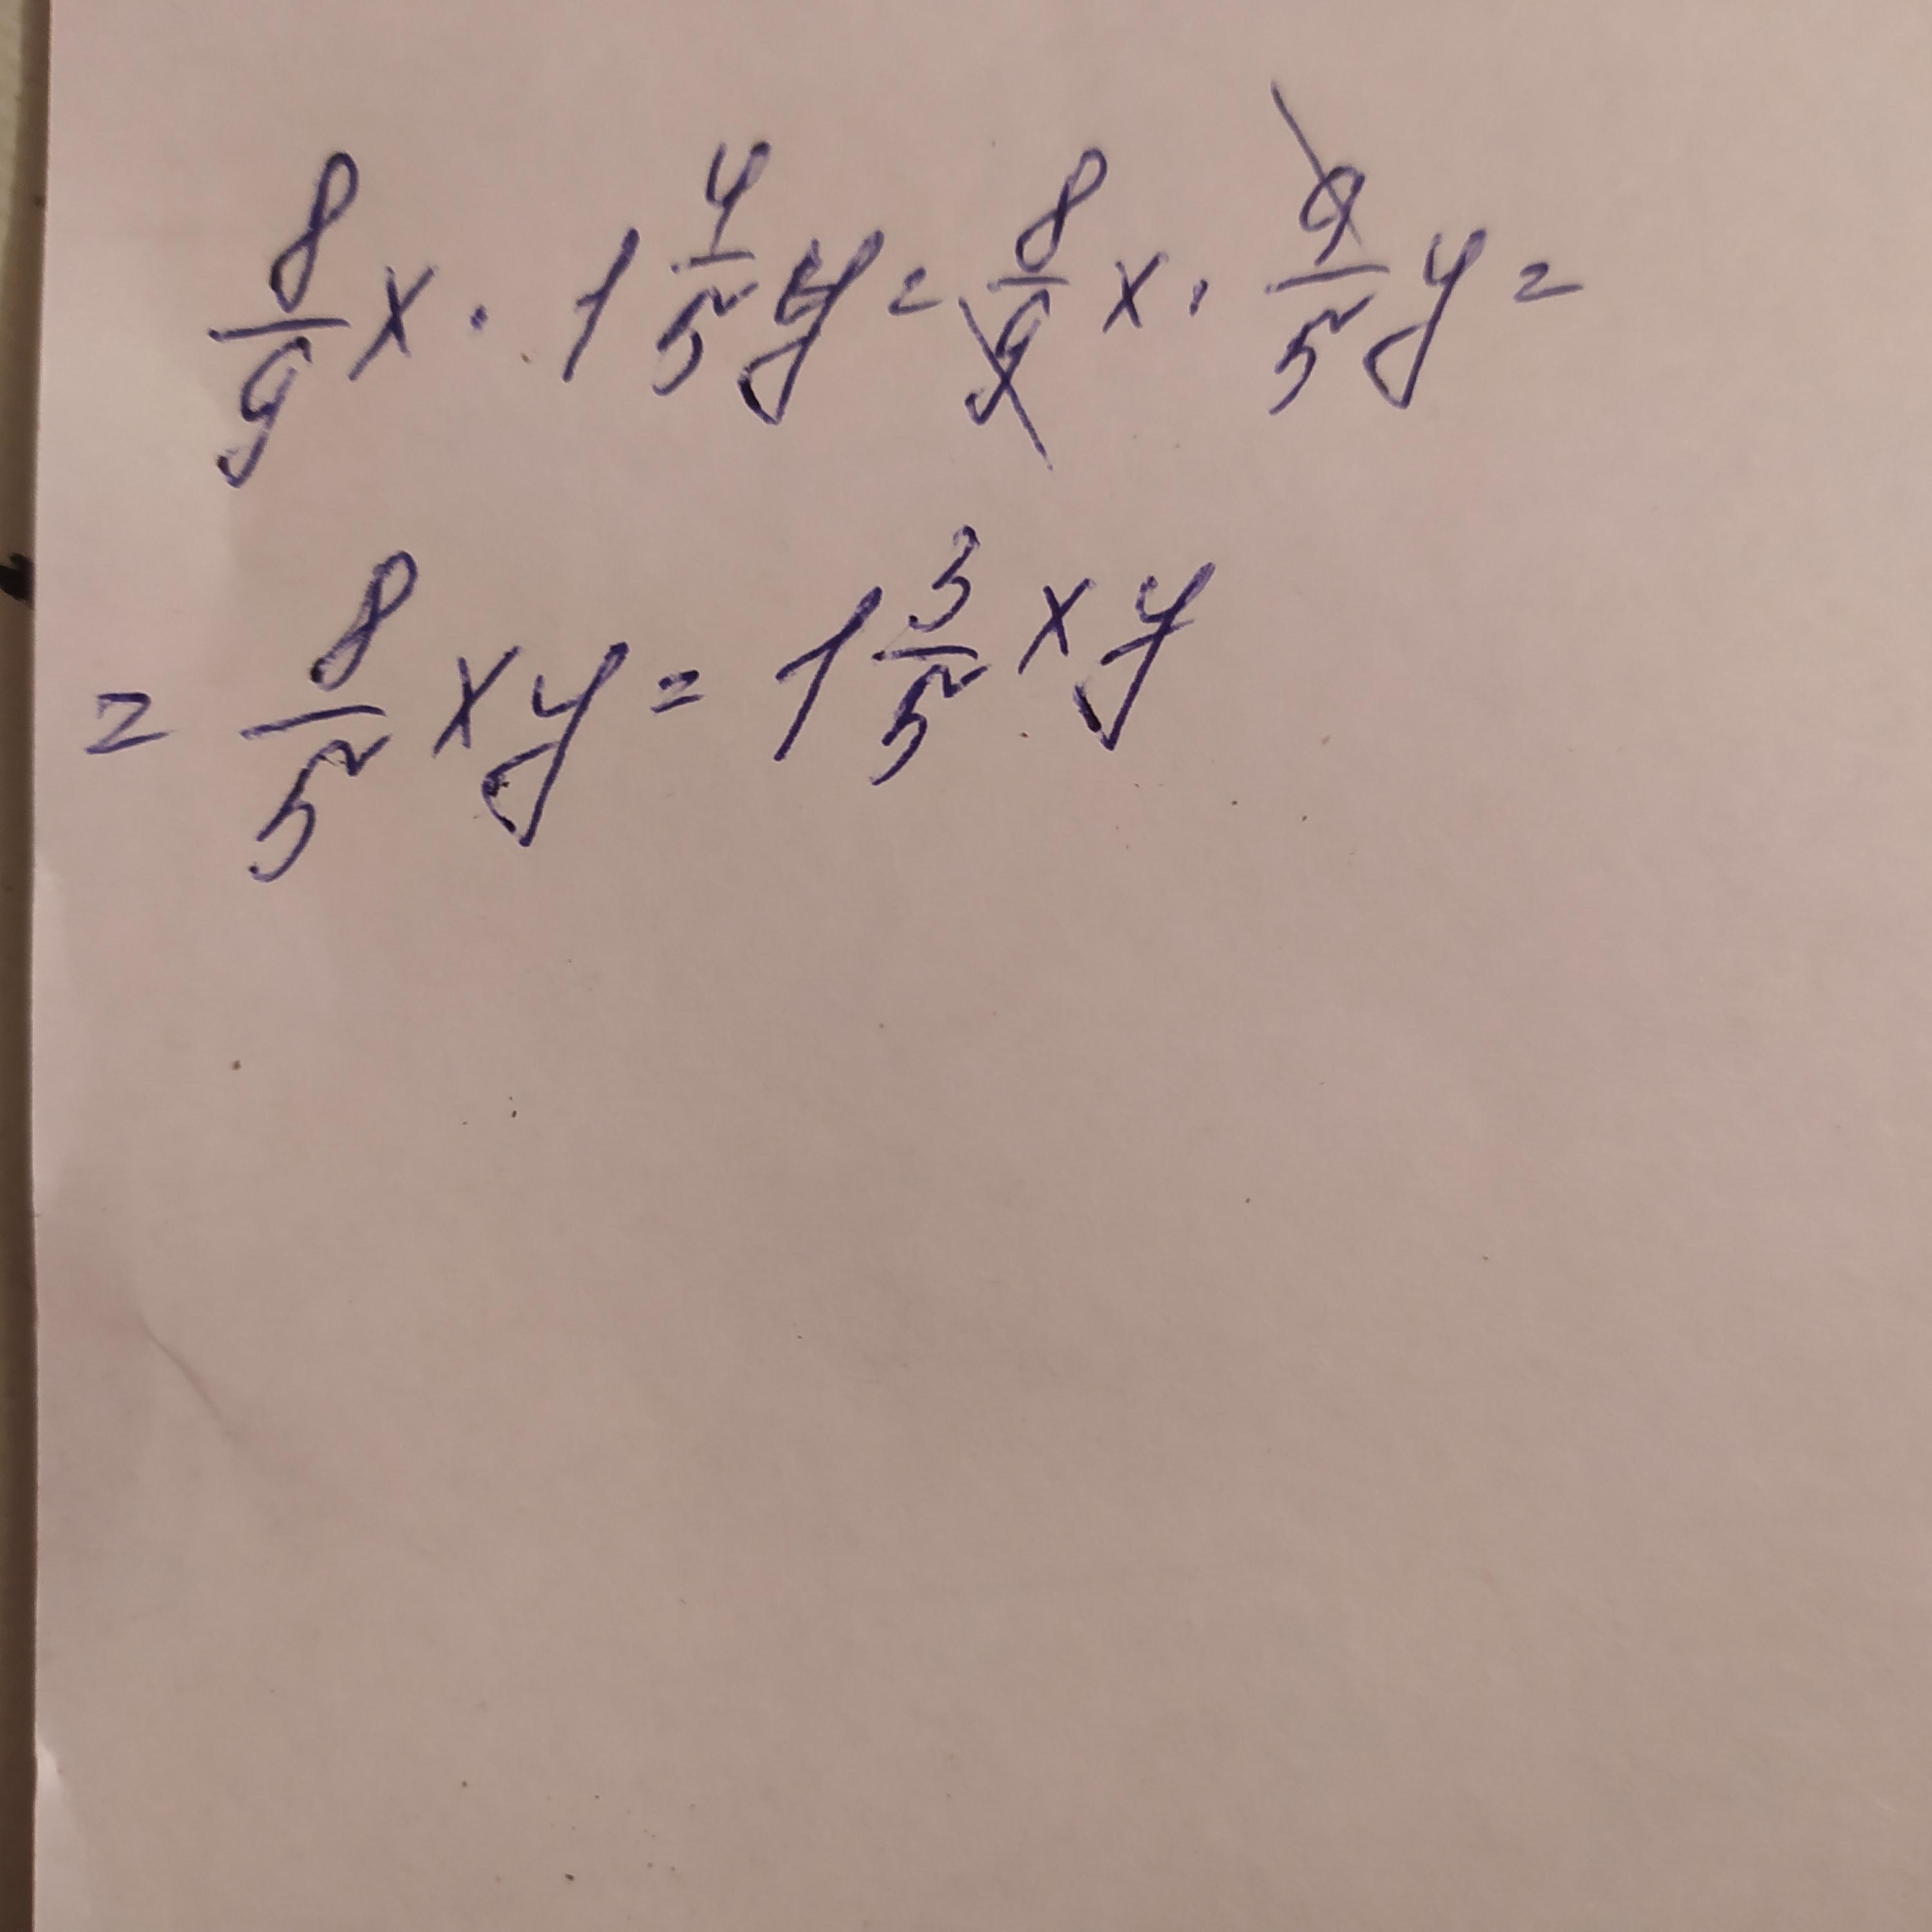 8/9 x · 1 4/5 y = 8/9 x · 9/5 y =
= 8/5 xy = 1 3/5 xy